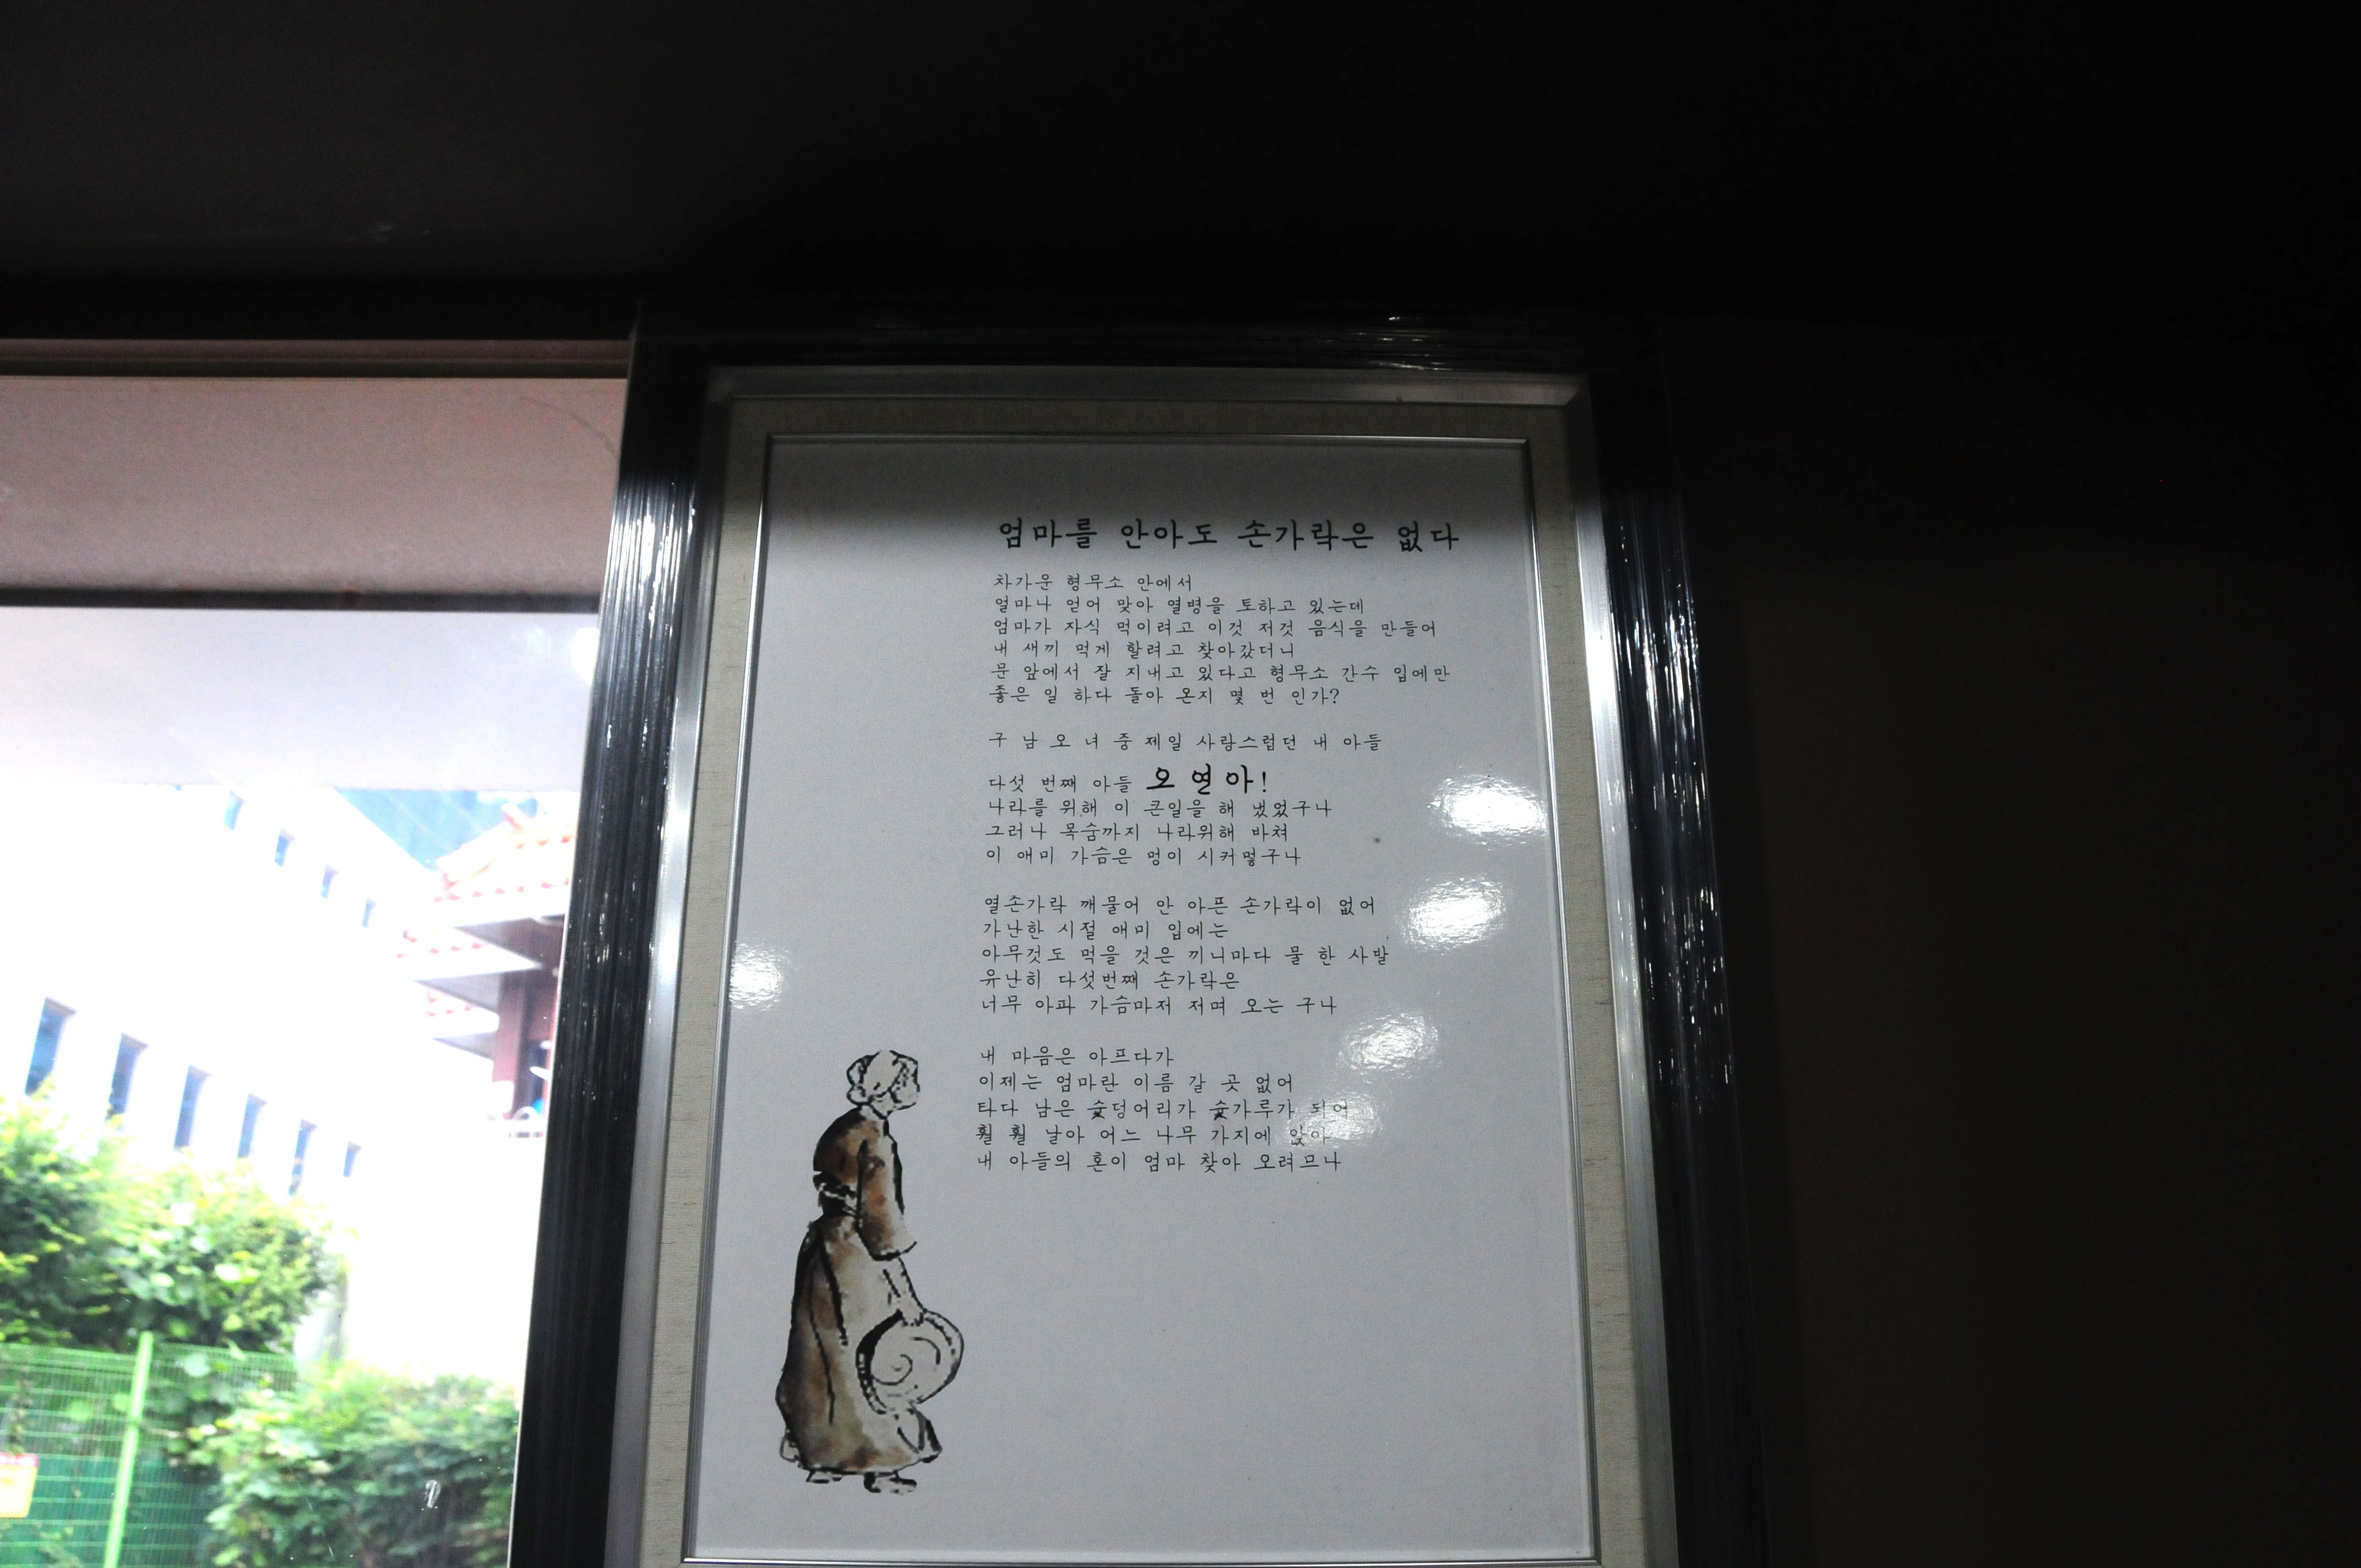 엄마를 안아도 손가락은 없다
차가운 형무소 안에서
얼마나 얻어 맞아 열병을 토하고 있는데
엄마가 자식 먹이려고 이것 저것 음식을 만들어
내 새끼 먹게 할려고 찾아갔더니
문 앞에서 잘 지내고 있다고 형무소 간수 입에만
좋은 일 하다 돌아 온지 몇 번 인가?
구 남 오 녀 중 제일 사랑스럽던 내 아들
다섯 번째 아들 오 연 아!
나라를 위해 이 큰일을 해 냈었구나
그러나 목숨까지 나라위해 바쳐
이 애미 가슴은 멍이 시커멓구나
열손가락 깨물어 안 아픈 손가락이 없어
가난한 시절 애미 입에는
아무것도 먹을 것은 끼니마다 물 한 사발
유난히 다섯번째 손가락은
너무 아파 가슴마저 저며 오는 구나
내 마음은 아프다가
이제는 엄마란 이름 갈 곳 없어
타다 남은 숯덩어리가 숯가루가 되어
훨 훨 날아 어느 나무 가지에 앉아
내 아들의 혼이 엄마 찾아 오려므나